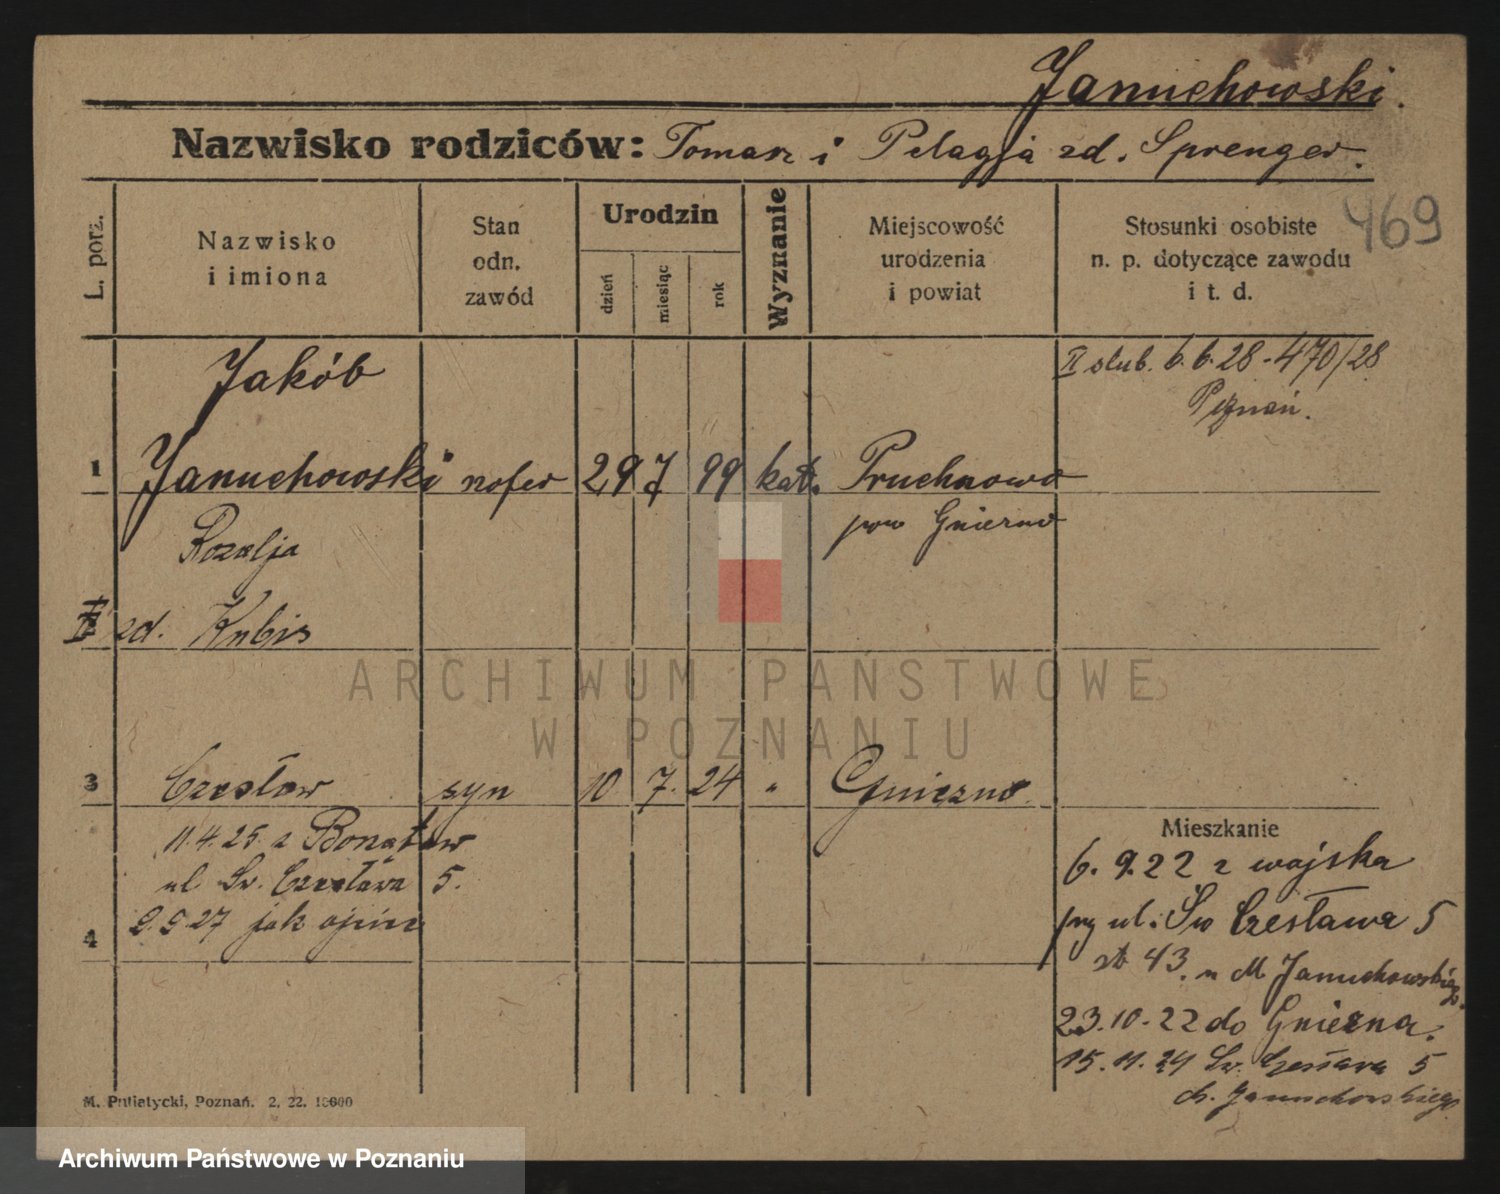 Januchowski.
Nazwisko rodziców: Tomasz i Pelagja zd. Sprenger.
L. porz.
Nazwisko
i imiona
Stan
odn.
zawód
Urodzin
dzień
miesiąc
rok
Wyznanie
Miejscowość
urodzenia
i powiat
Stosunki osobiste
n. p. dotyczące zawodu
i t. d.
469
Jakób
II ślub. 6.6.28 - 470/28
Poznań.
1 Januchowski szofer 29 7 99 kat. Pruchnowo
pow Gniezno
Rozalja
II zd. Kubis
3 Czesław syn 10 7. 24 " Gniezno
11.4.25 z
ul Św. Czesława 5.
9.9.27 jak
4
Mieszkanie
6. 9.22 z wojska
przy ul. Św Czesława 5
43. u M Januchowskiego.
23.10.22 do Gniezna.
15.11.24 Św. Czesława 5
Januchowskiego
M. Putiatycki, Poznań. 2, 22. 10000
ARCHIWUM PAŃSTWOWE
W POZNANIU
Archiwum Państwowe w Poznaniu